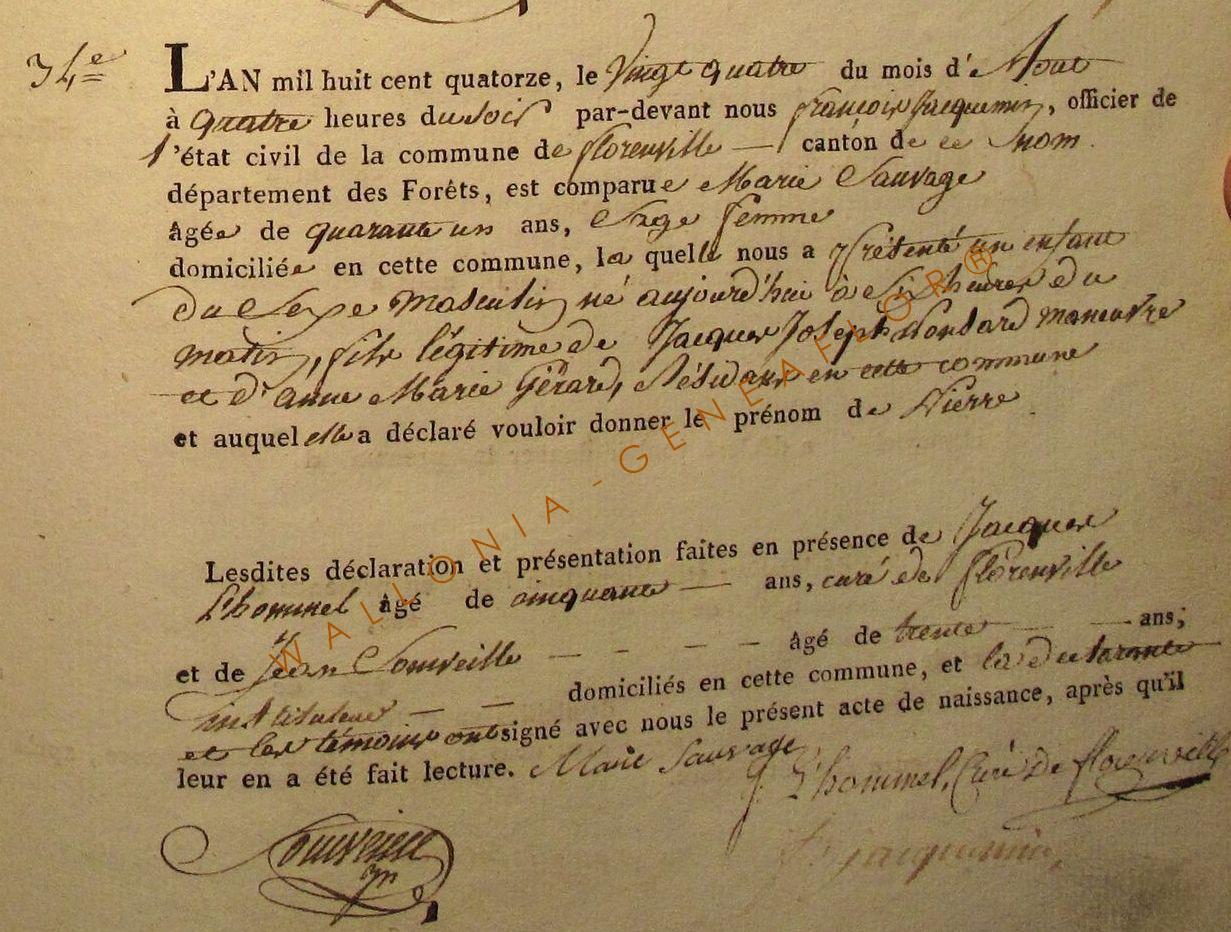 34e
L'AN mil huit cent quatorze, le Vingt quatre du mois d'Aout
à quatre heures du soir par-devant nous françois Jacquemin, officier de
l'état civil de la commune de florenville — canton de ce nom.
département des Forêts, est comparue Marie Sauvage
âgée de quarante un ans, Sage femme
domiciliée en cette commune, la quelle nous a présenté un enfant
du Sexe Masculin né aujourd'hui à Six heures du
matin, fils légitime de Jacques Joseph manœuvre
et d'anne Marie Gérard, Résidans en cette commune
et auquel elle a déclaré vouloir donner le prénom de Pierre
Lesdites déclaration et présentation faites en présence de Jacques
L'hommel âgé de cinquante — ans, curé de florenville
et de Jean Souveille — — — — âgé de trente — — ans,
instituteur — — domiciliés en cette commune, et la déclarante
et les témoins ont signé avec nous le présent acte de naissance, après qu'il
leur en a été fait lecture. Marie Sauvage
J. L'hommel, Curé De florenville
Souveille
Jacquemin
WALLONIA-GENEAFLOR®